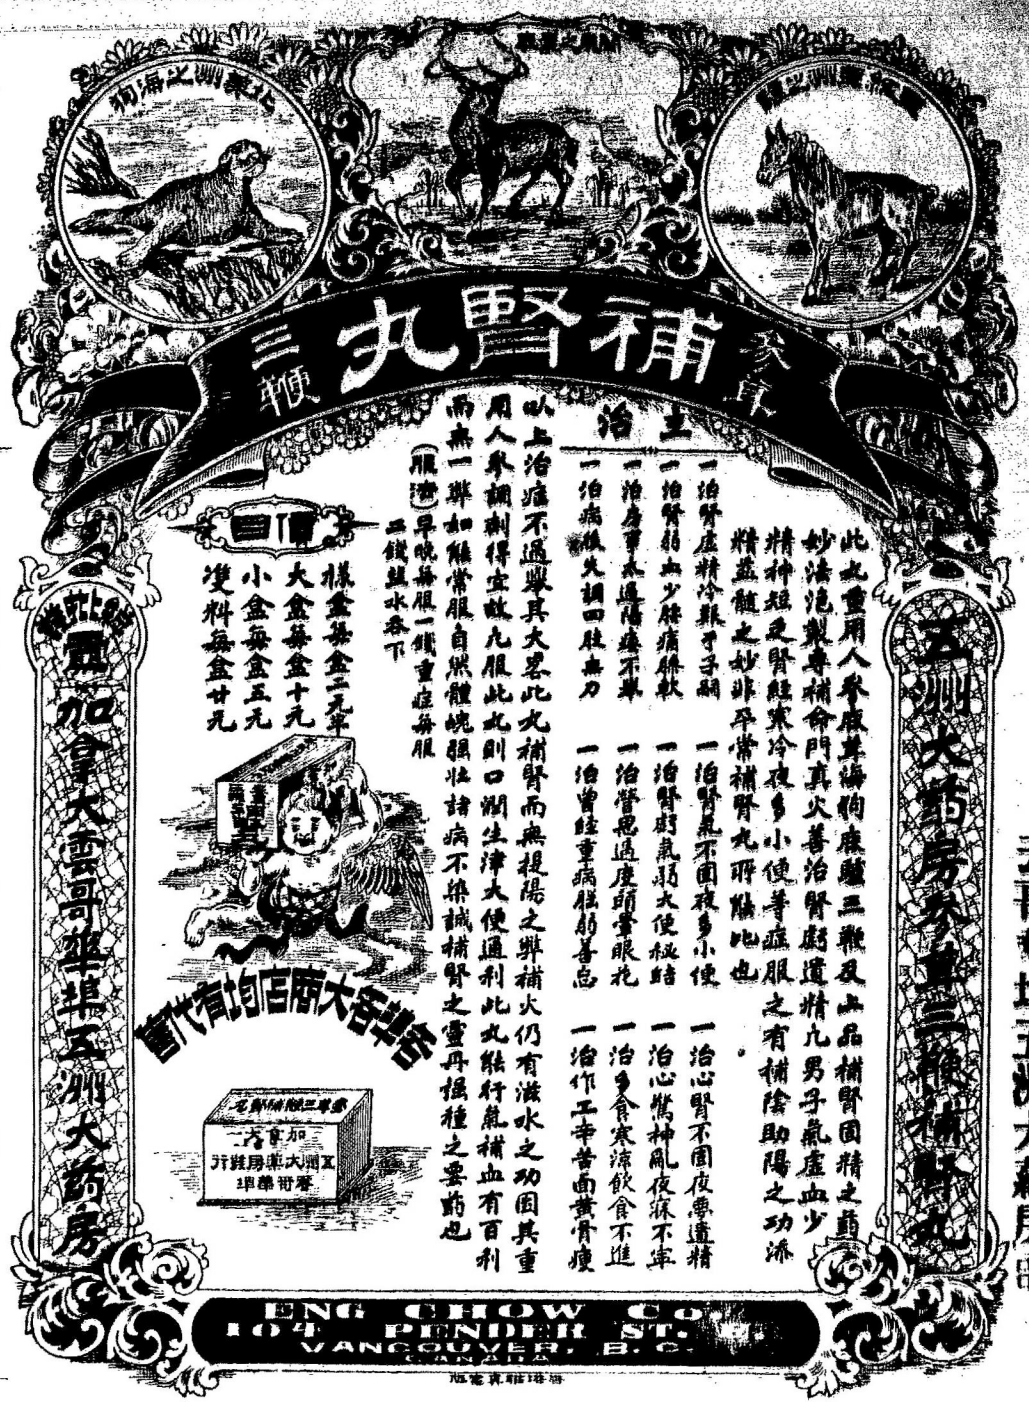 北美洲之海狗
參茸
補腎丸
三鞭
五洲大药房參茸三鞭補腎丸
此丸重用人參鹿茸海狗鹿驢三鞭及上品補腎固精之葯
妙法泡製專補命門真火善治腎虧遺精凢男子氣虛血少
精神短乏腎經寒冷夜多小便等症服之有補陰助陽之功添
精益髓之妙非平常補腎丸所能比也
主治
一治腎虛精冷艱于子嗣
一治腎氣不固夜多小便
一治心腎不固夜夢遺精
一治腎弱血少腰痛腳軟
一治腎虧氣弱大便秘結
一治心驚神亂夜寐不寧
一治房事太過陽痿不舉
一治營思過度頭暈眼花
一治多食寒涼飲食不進
一治病後失調四肢無力
一治曾經重病腦弱善忘
一治作工辛苦面黃骨瘦
以上治症不過舉其大畧此丸補腎而無提陽之弊補火仍有滋水之功因其重
用人參調劑得宜故凢服此丸則口潤生津大便通利此丸能行氣補血有百利
而無一弊如能常服自然體魄强壯諸病不染誠補腎之靈丹種之要葯也
(服法)早晚每服一錢重症每服
二錢鹽水吞下
價目
樣盒每盒二元半
大盒每盒十元
小盒每盒五元
雙料每盒廿元
各埠各大商店均有代售
參茸三鞭補腎丸
加拿大
雲哥華埠
加拿大雲哥華埠五洲大药房
ENG CHOW Co
104 PENDER ST.
VANCOUVER, B. C.
CANADA